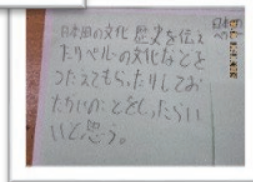 日本の文化歴史を伝え
たりペルーの文化などを
つたえてもらったりしてお
たがいのことをしったらい
いと思う。